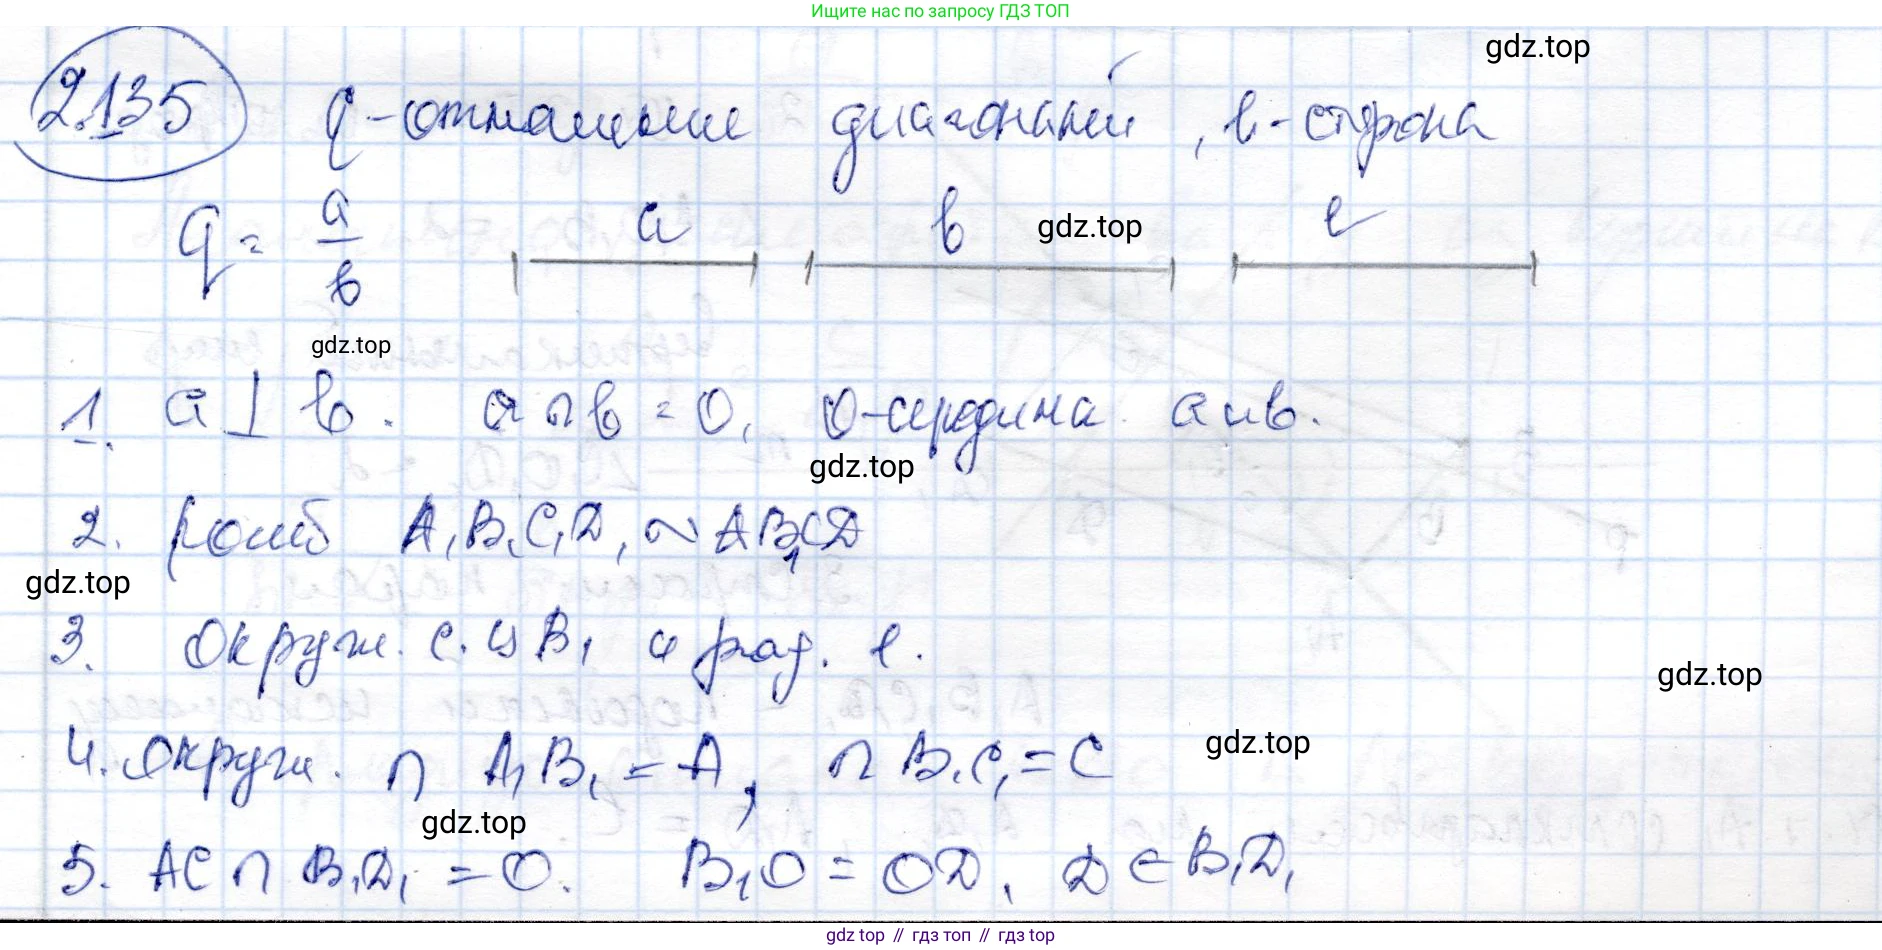 Ищите нас по запросу ГДЗ ТОП
gdz.top
2.135 q - отношение диагоналей, в - сторона
q = a/в a в gdz.top e
gdz.top
1. a ⊥ в. a ∩ в = O, O - середина a и в.
gdz.top
2. ромб A₁B₁C₁D₁ ~ AB₁CD
gdz.top
3. Окруж. с ц B₁ и рад. e.
gdz.top
4. Окруж. ∩ A₁B₁ = A, ∩ B₁C₁ = C
gdz.top
gdz.top
5. AC ∩ B₁D₁ = O. B₁O = OD, D ∈ B₁D₁
gdz top // гдз топ // гдз top